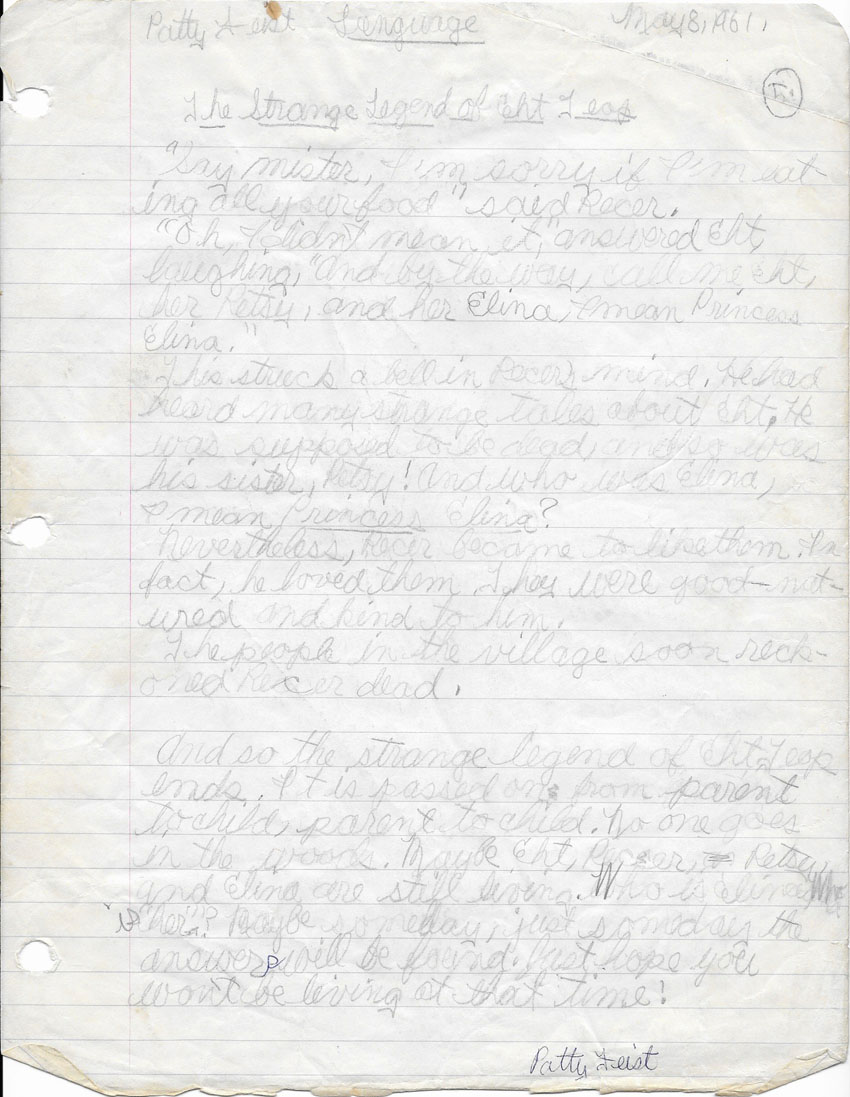 Patty Feist Language May 8, 1961.
The Strange Legend of Eht Leop
"Say mister, I'm sorry if I'm eat-
ing all your food" said Recer.
"Oh, I didn't mean it," answered Eht,
laughing, "And by the way, call me Eht,
her Retsy, and her Elina, I mean Princess
Elina."
This struck a bell in Recer's mind. He had
heard many strange tales about Eht. He
was supposed to be dead, and so was
his sister, Retsy! And who was Elina,
I mean Princess Elina?
Nevertheless, Recer became to like them. In
fact, he loved them. They were good-nat-
ured and kind to him.
The people in the village soon reck-
oned Recer dead.
And so the strange legend of Eht Leop
ends. It is passed on from parent
to child, parent to child. No one goes
in the woods. Maybe Eht, Recer, Retsy,
and Elina are still living. Who is Elina?
is "her"? Maybe someday, just someday the
answer will be found. Just hope you
won't be living at that time!
Patty Feist